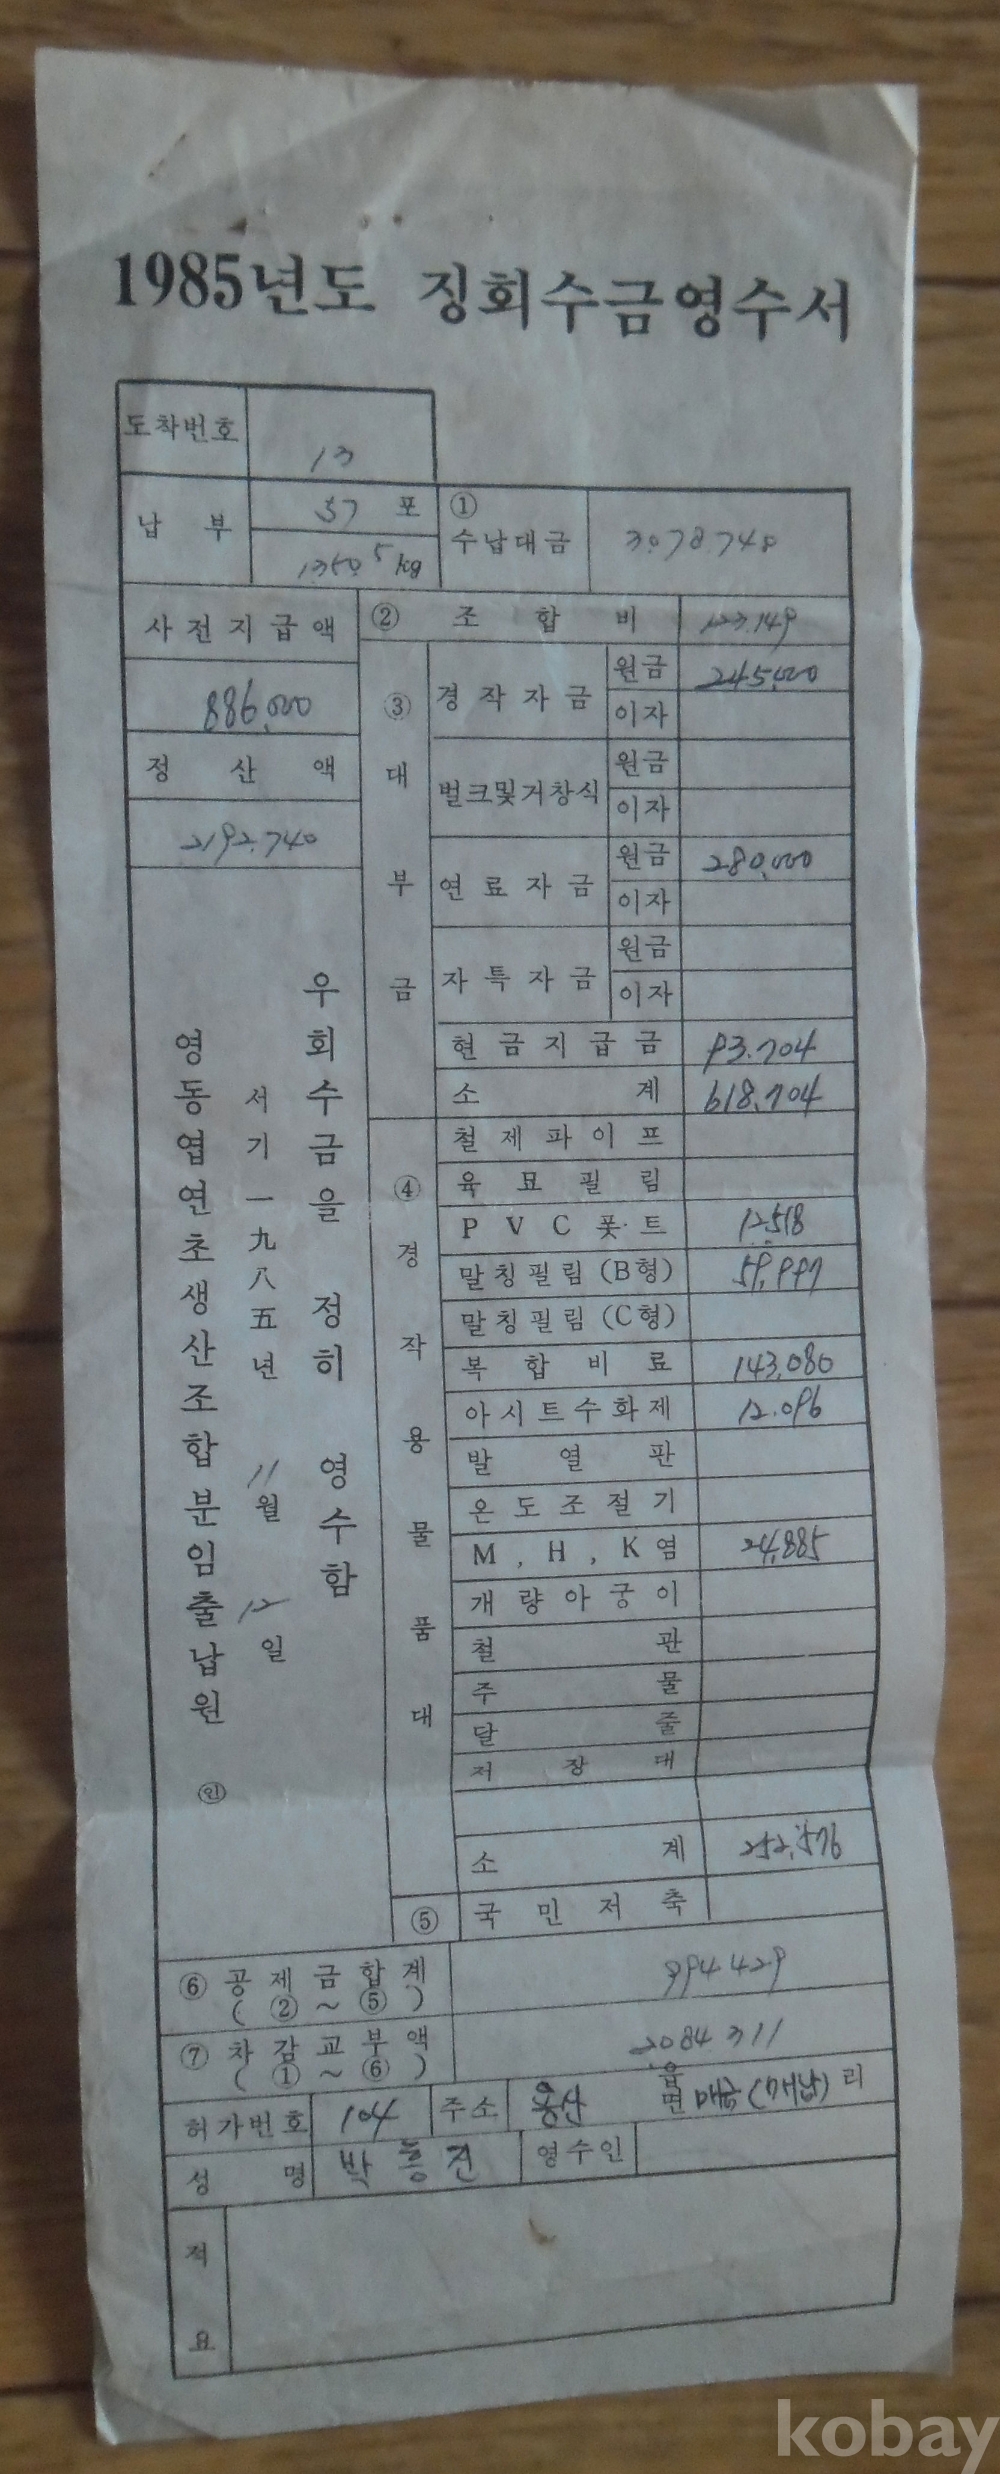 1985년도 징회수금영수서
도착번호 13
납부 37 포
1350.5 kg
① 수납대금 3.078.740
사전지급액
886,000
정산액
2192.740
② 조합비 123.149
③ 대부금
경작자금 원금 245,000
이자
벌크및거창식 원금
이자
연료자금 원금 280,000
이자
자특자금 원금
이자
현금지급금 93.704
소계 618,704
④ 경작용물품대
철제파이프
육묘필림
PVC폿트 12518
말칭필림(B형) 59,997
말칭필림(C형)
복합비료 143,080
아시트수화제 12.096
발열판
온도조절기
M, H, K염 24,885
개량아궁이
철관
주물
달줄
저장대
소계 252,576
⑤ 국민저축
우회수금을 정히 영수함
서기一九八五년 11월 12일
영동엽연초생산조합분임출납원 ㊞
⑥ 공제금합계 994429
(②~⑤)
⑦ 차감교부액 2084311
(①~⑥)
허가번호 104 주소 용산 읍면 매금(매남)리
성명 박 흥 진 영수인
적요
kobay